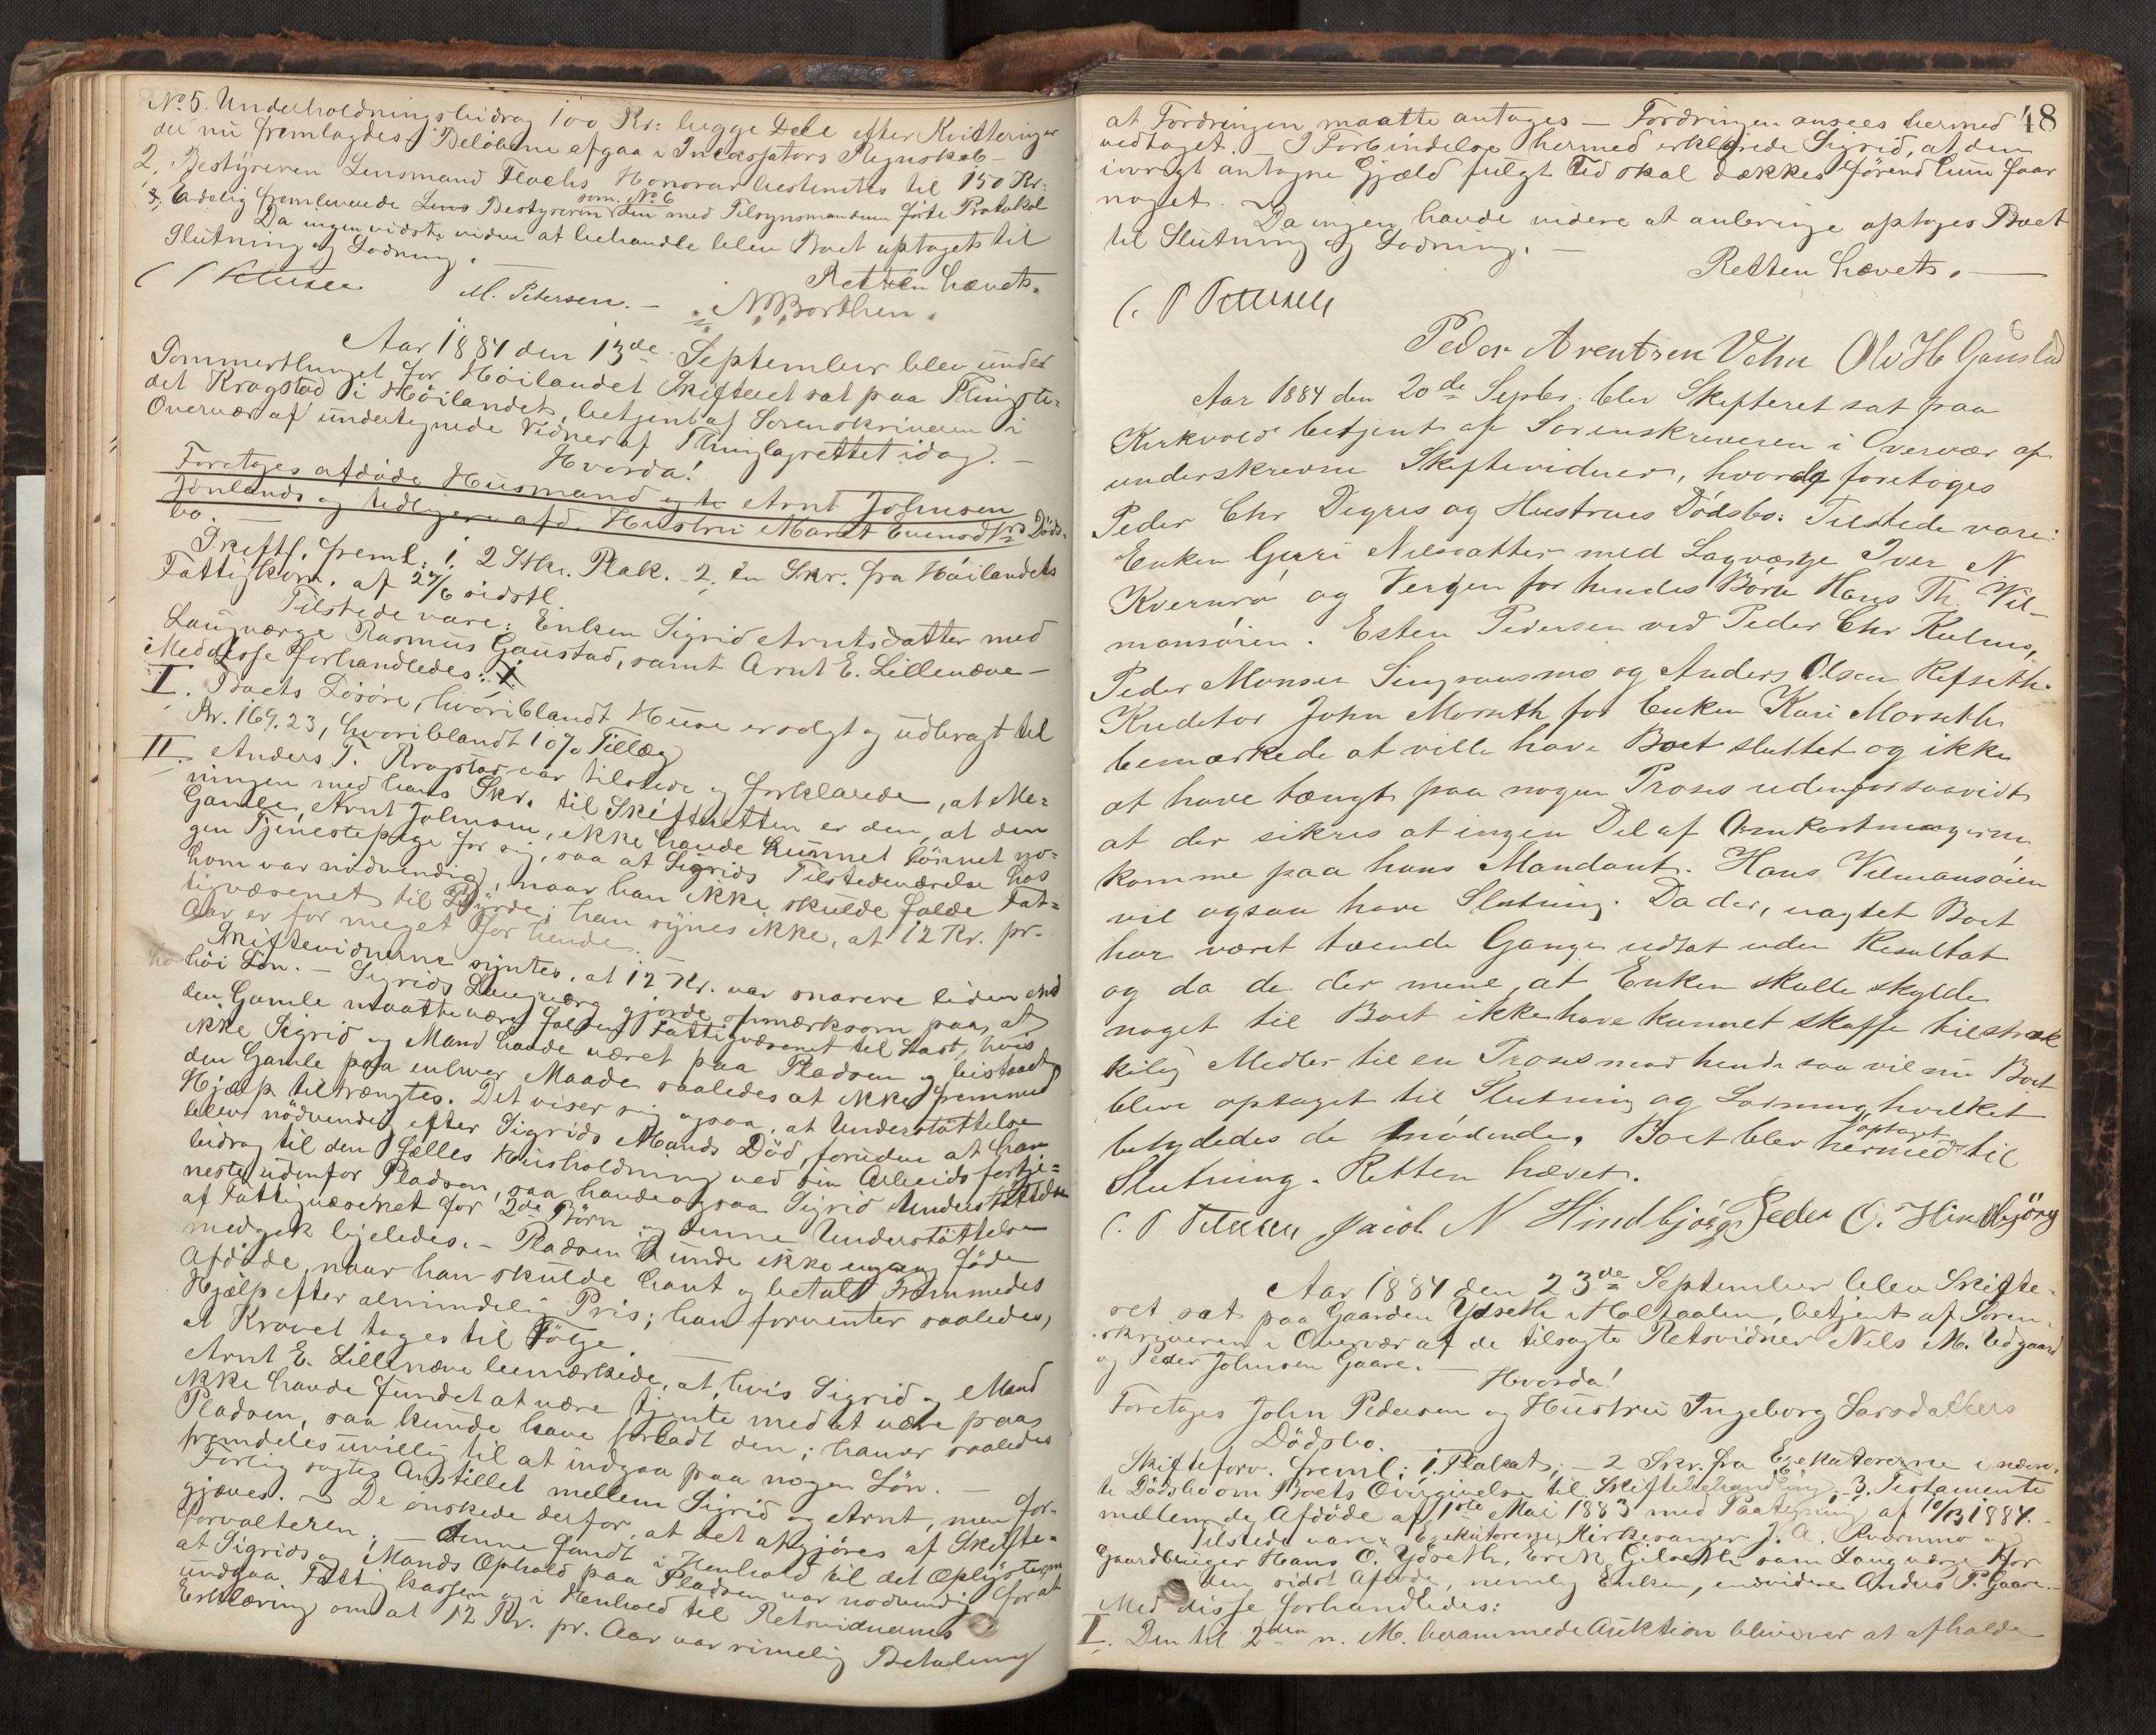 No 5. Underholdningsbidrag 100 Kr: begge Dele efter Kvitteringer
der nu fremlagdes. Beløbene afgaa i Incassators Regnskab –
2. Bestyreren Lensmand Floehs Honorar bestemtes til 150 Kr:
3, Endelig fremleverede Lens Bestyreren som No 6 den med Tilsynsmanden førte Protokol
Da ingen vidste videre at behandle blev Boet optaget til
Slutning og Lodning. –
Retten hævet.
C P Petersen M. Petersen. – N. Borthen.
Aar 1884 den 13de September blev under
Sommerthinget for Høilandet Skifteret sat paa Thingste-
det Kragstad i Høilandet, betjent af Sorenskriveren i
Overvær af undertegnede Vidner af Thinglagrettet idag. –
Hvorda!
Foretages afdøde Husmand Arnt Johnsen
Jønlands og tidligere afd. Hustru Marit Evensdtrs Døds-
bo. –
Skiftf. freml: 1, 2 Stkr. Plak. 2, en Skr. fra Høilandets
Fattigkom. af 27/6 sidstl.
Tilstede vare: Enken Sigrid Arntsdatter med
Laugværge Rasmus Gaustad, samt Arnt E. Lillenæve –
Med disse forhandledes:
I. Boets Løsøre, hvoriblandt Huse er solgt og udbragt til
Kr. 169.23, hvoriblandt 10% Tillæg
II. Anders T. Kragstad var tilstede og forklarede, at Me-
ningen med hans Skr. til Skifteretten er den, at den
Gamle, Arnt Johnsen, ikke havde kunnet lønnet no-
gen Tjenestepige for sig, saa at Sigrids Tilstedeværelse hos
ham var nødvendig, naar han ikke skulde falde Fat-
tigvæsenet til Byrde; han synes ikke, at 12 Kr. pr.
Aar er for meget for hende.
Skiftevidnerne syntes, at 12 Kr. var snarere liden end
høi Løn. – Sigrids Laugværg gjorde opmærksom paa, at
den Gamle maatte være falden Fattigvæsenet til Last, hvis
ikke Sigrid og Mand havde været paa Pladsen og bistaaet
den Gamle paa enhver Maade saaledes at ikke fremmed
Hjælp tiltrængtes. Det viser sig ogsaa, at Understøttelse
blev nødvendig efter Sigrids Mands Død, foruden at han
bidrog til den fælles Husholdning ved sin Arbeidsfortje-
neste udenfor Pladsen, saa havde ogsaa Sigrid Understøttelse
af Fattigvæsenet for 2de Børn og denne Understøttelse
medgik ligeledes. – Pladsen kunde ikke engang føde
Afdøde, naar han skulde havt og betalt Fremmedes
Hjælp efter almindelig Pris; han forventer saaledes,
at Kravet tages til Følge. –
Arnt E. Lillenæve bemærkede, at, hvis Sigrid og Mand
ikke havde fundet at være tjente med at være paa
Pladsen, saa kunde have forladt den; han er saaledes
fremdeles uvillig til at indgaa paa nogen Løn. –
Forlig søgtes Anstillet mellem Sigrid og Arnt, men for-
gjæves. – De ønskede derfor, at det afgjøres af Skifte-
forvalteren. – Denne fandt i Henhold til det Oplyste om
at Sigrids og Mands Ophold paa Pladsen var nødvendig for at
undgaa Fattigkassen og i Henhold til Retsvidnernes
Erklæring om at 12 Kr. pr. Aar var rimelig Betaling
48
at Fordringen maatte antages – Fordringen ansees hermed
vedtaget. – I Forbindelse hermed erklærede Sigrid, at den
iøvrigt antagne Gjæld fulgt Ud skal dækkes førend hun faar
noget. – Da ingen havde videre at anbringe optages Boet
til Slutning og Lodning. –
Retten hævets. –
C. P Petersen
Peder Arentsen Vehn Ole H Gaustad
Aar 1884 den 20de Septbr. blev Skifteret sat paa
Kirkvold betjent af Sorenskriveren i Overvær af
underskrevne Skiftevidner, hvorda foretoges
Peder Chr Degres og Hustrues Dødsbo. Tilstede vare:
Enken Guri Nilsdatter med Lagværge Iver N
Kvernrø og Vergen for hendes Børn Hans Th. Vil-
mansøien. Esten Pedersen ved Peder Chr Kulmo,
Peder Monsen Singsaasmo og Anders Olsen Refseth.
Kreditor John Morseth for Enken Kari Morseth
bemærkede at ville have Boet sluttet og ikke
at have tængt paa nogen Proses udenfor saavidt
at der sikres at ingen Del af Omkostningerne
komme paa hans Mandant. Hans Vilmansøien
vil ogsaa have Slutning. Da der, uagtet Boet
har været tvende Gange udsat uden Resultat
og da de der mene, at Enken skulle skylde
noget til Boet ikke have kunnet skaffe tilstræk
kelig Medler til en Proses mod hende saa vil nu Boet
blive optaget til Slutning og Lodning hvilket
betydedes de mødende. Boet blev hermed optaget til
Slutning. Retten hævet.
C. P Petersen Jacob N Hindbjørg Peder O. Hindbjørg
Aar 1884 den 23de September blev Skifte-
ret sat paa Gaarden Ydseth i Holtaalen, betjent af Soren-
skriveren i Overvær af de tilsagte Retsvidner Nils M. Udgaard
og Peder Johnsen Gaare. –
Hvorda!
Foretages John Pedersen og Hustru Ingeborg Larsdatters
Dødsbo.
Skifteforv. freml: 1. Plakat; – 2 Skr. fra Exekutorerne i nævn-
te Dødsbo om Boets Overgivelse til Skiftebehandling – 3. Testamente
mellem de Afdøde af 1ste Mai 1883 med Paategning af 10/3 1884. –
Tilstede vare: Exekutorerne, Kirkesanger J. A. Kværnmo og
Gaardbruger Hans O. Ydseth, Erik Gilseth som Laugværge for
den sidst Afdøde, nemlig Enken, endvidere Anders P. Gaare. –
Med disse forhandledes:
I. Den til 2den n. M. berammede Auktion bliver at afholde